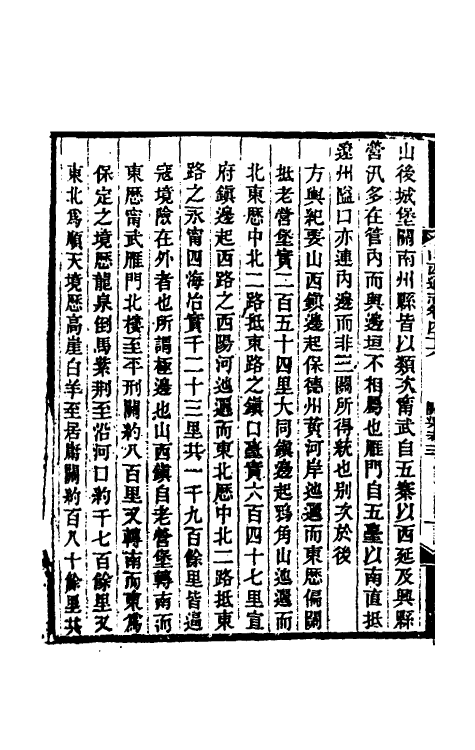 山後城堡關南州縣皆以類次甯武自五寨以西延及興縣
營汛多在管內而與邊垣不相屬也雁門自五臺以南直抵
遼州隘口亦連內邊而非三關所得統也別次於後
方輿紀要山西鎮邊起保德州黃河岸迆邐而東歷偏關
抵老營堡實二百五十四里大同鎮邊起鴉角山迆邐而
北東歷中北二路抵東路之鎮口臺實六百四十七里宣
府鎮邊起西路之西陽河迆邐而東北歷中北二路抵東
路之永甯四海冶實千二十三里共一千九百餘里皆逼
寇境險在外者也所謂極邊也山西鎮自老營堡轉南而
東歷甯武雁門北樓至平刑關約八百里又轉南而東爲
保定之境歷龍泉倒馬紫荆至沿河口約千七百餘里又
東北爲順天境歷高崖白羊至居庸關約百八十餘里共
山西通志卷四十六